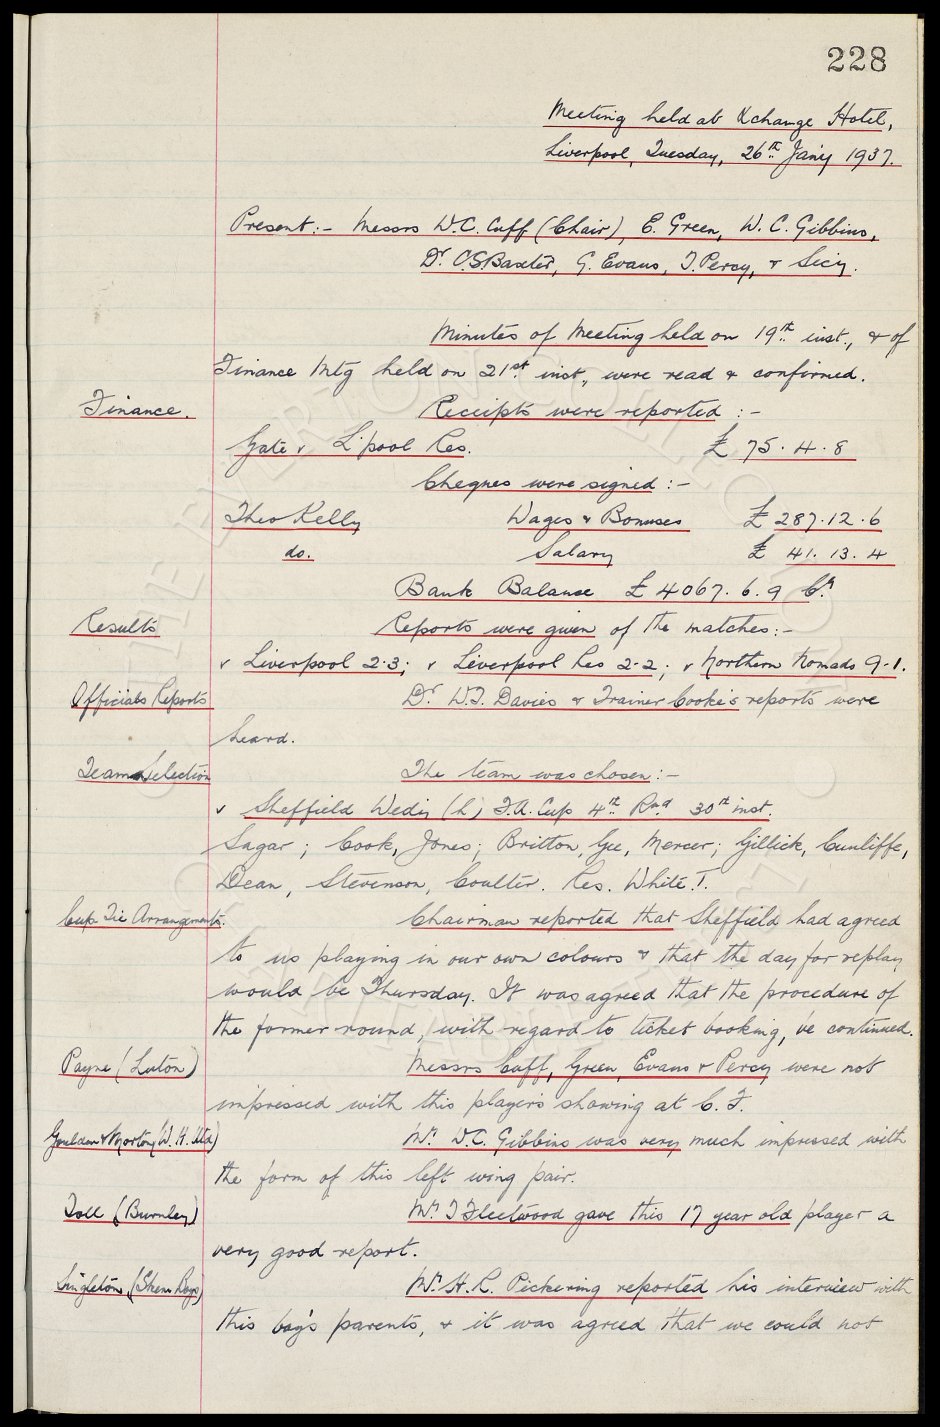 228
Meeting held at Xchange Hotel,
Liverpool, Tuesday, 26th Jan'y 1937.
Present:- Messrs W.C. Cuff (Chair), E. Green, W. C. Gibbins,
Dr. C.S Baxter, G. Evans, J. Percy, & Secy.
Minutes of Meeting held on 19th inst., & of
Finance Mtg held on 21st inst., were read & confirmed.
Finance. Receipts were reported :-
Gate v L'pool Res. £ 75. 4. 8
Cheques were signed :-
Theo Kelly Wages & Bonuses £ 287. 12. 6
do. Salary £ 41. 13. 4
Bank Balance £ 4067. 6. 9 Cr.
Results Reports were given of the matches:-
v Liverpool 2-3; v Liverpool Res 2-2; v Northern Nomads 9-1.
Officials Reports Dr. W.J. Davies & Trainer Cooke's reports were
heard.
Team Selection The team was chosen :-
v Sheffield Wedy (h) F.A. Cup 4th Rnd 30th inst.
Sagar; Cook, Jones; Britton, Gee, Mercer; Gillick, Cunliffe,
Dean, Stevenson, Coulter. Res. White T.
Cup Tie Arrangements. Chairman reported that Sheffield had agreed
to us playing in our own colours & that the day for replay
would be Thursday. It was agreed that the procedure of
the former round, with regard to ticket booking, be continued.
Payne (Luton) Messrs Cuff, Green, Evans & Percy were not
impressed with this player's showing at C. F.
Goulden & Morton (W. H. Utd) Mr. W.C. Gibbins was very much impressed with
the form of this left wing pair.
Toll (Burnley) Mr. J Fleetwood gave this 17 year old player a
very good report.
Singleton (Skem Boys) Mr. H. R. Pickering reported his interview with
this boy's parents, & it was agreed that we could not